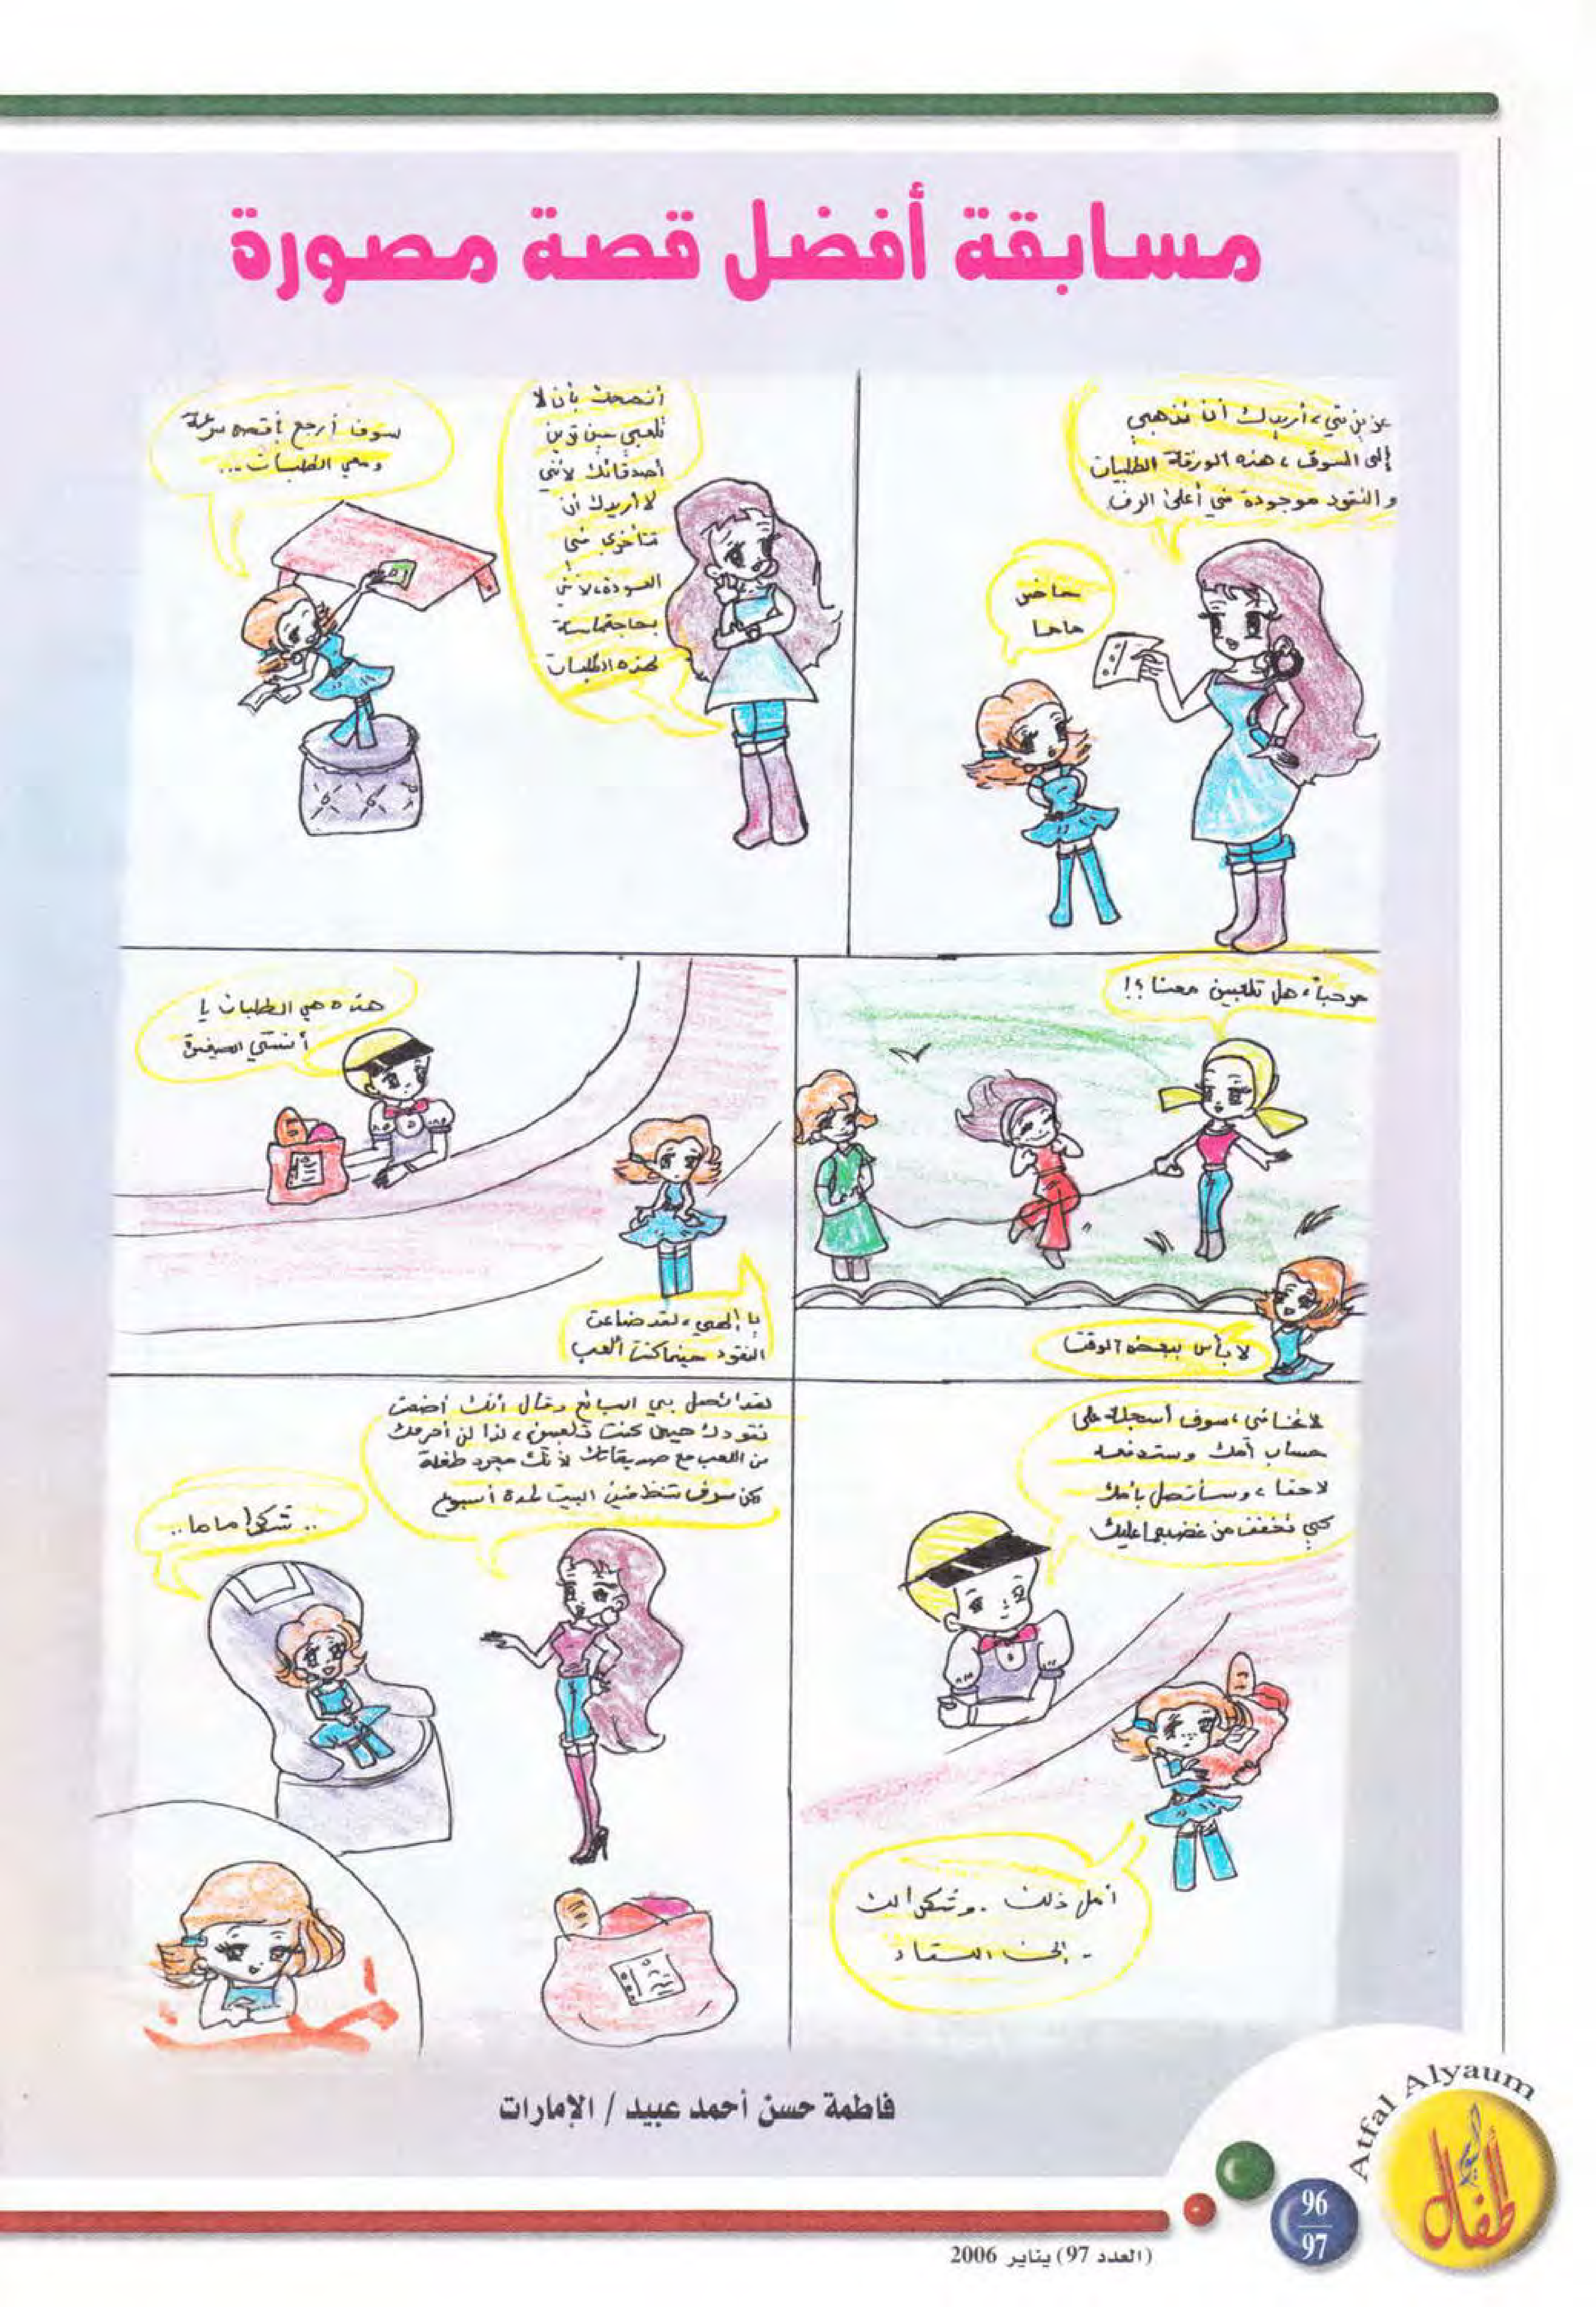 مسابقة أفضل قصة مصورة
عزيزتي، أريدك أن تذهبي
إلى السوق، هذه الورقة الطلبات
والنقود موجودة في أعلى الرف
حاضر
ماما
أنصحك بأن لا
تلعبي حين ترين
أصدقائك لأنني
لا أريدك أن
تتأخري في
العودة، لأنني
بحاجة ماسة
لهذه الطلبات
سوف أرجع بأقصى سرعة
ومعي الطلبات...
مرحباً، هل تلعبين معنا؟!
لا بأس ببعض الوقت
هذه هي الطلبات يا
آنستي الصغيرة
يا إلهي، لقد ضاعت
النقود حينما كنت ألعب
لا تخافي، سوف أسجله على
حساب أمك وستدفعه
لاحقا، وسأتصل بأمك
كي تخفف من غضبها عليك
آمل ذلك.. وشكرا لك
- إلى اللقاء
لقد اتصل بي البائع وقال أنك أضعت
نقودك حينما كنت تلعبين، لذا لن أحرمك
من اللعب مع صديقاتك لأنك مجرد طفلة
لكن سوف تنظفين البيت لمدة أسبوع
.. شكرا ماما..
فاطمة حسن أحمد عبيد / الإمارات
Atfal Alyaum
أطفال اليوم
96
97
(العدد 97) يناير 2006